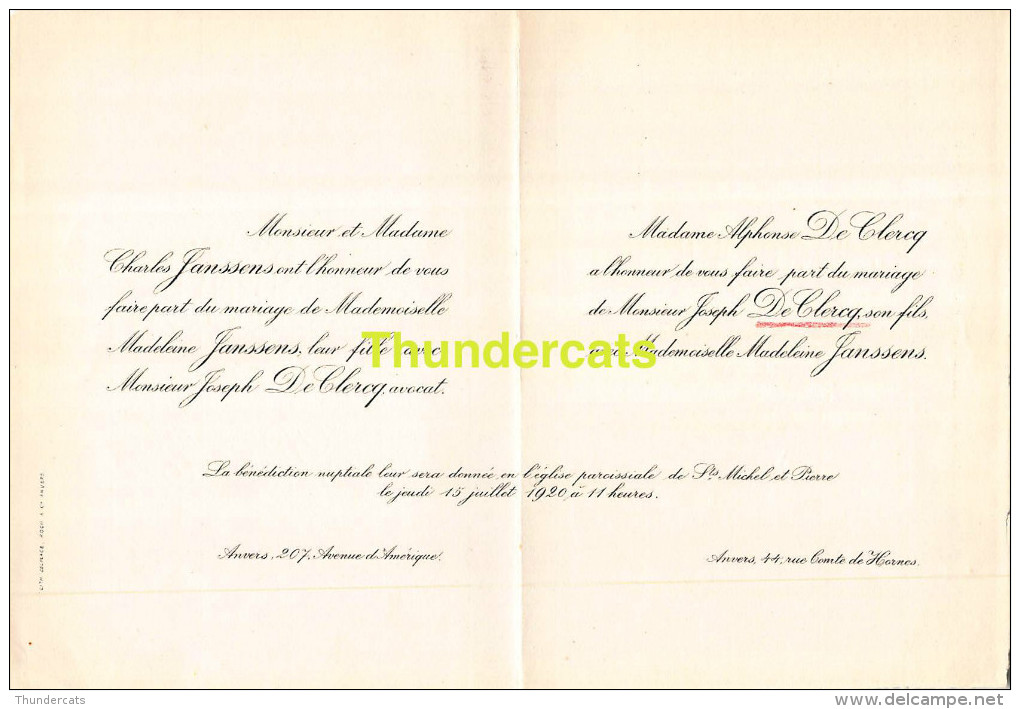 Monsieur et Madame
Charles Janssens ont l'honneur de vous
faire part du mariage de Mademoiselle
Madeleine Janssens, leur fille avec
Monsieur Joseph De Clercq, avocat.
Madame Alphonse De Clercq
a l'honneur de vous faire part du mariage
de Monsieur Joseph De Clercq, son fils,
avec Mademoiselle Madeleine Janssens.
Thundercats
La bénédiction nuptiale leur sera donnée en l'église paroissiale de Sts Michel et Pierre
le jeudi 15 juillet 1920, à 11 heures.
Anvers, 207, Avenue d'Amérique.
Anvers, 44, rue Comte de Hornes.
Thundercats
www.delcampe.net